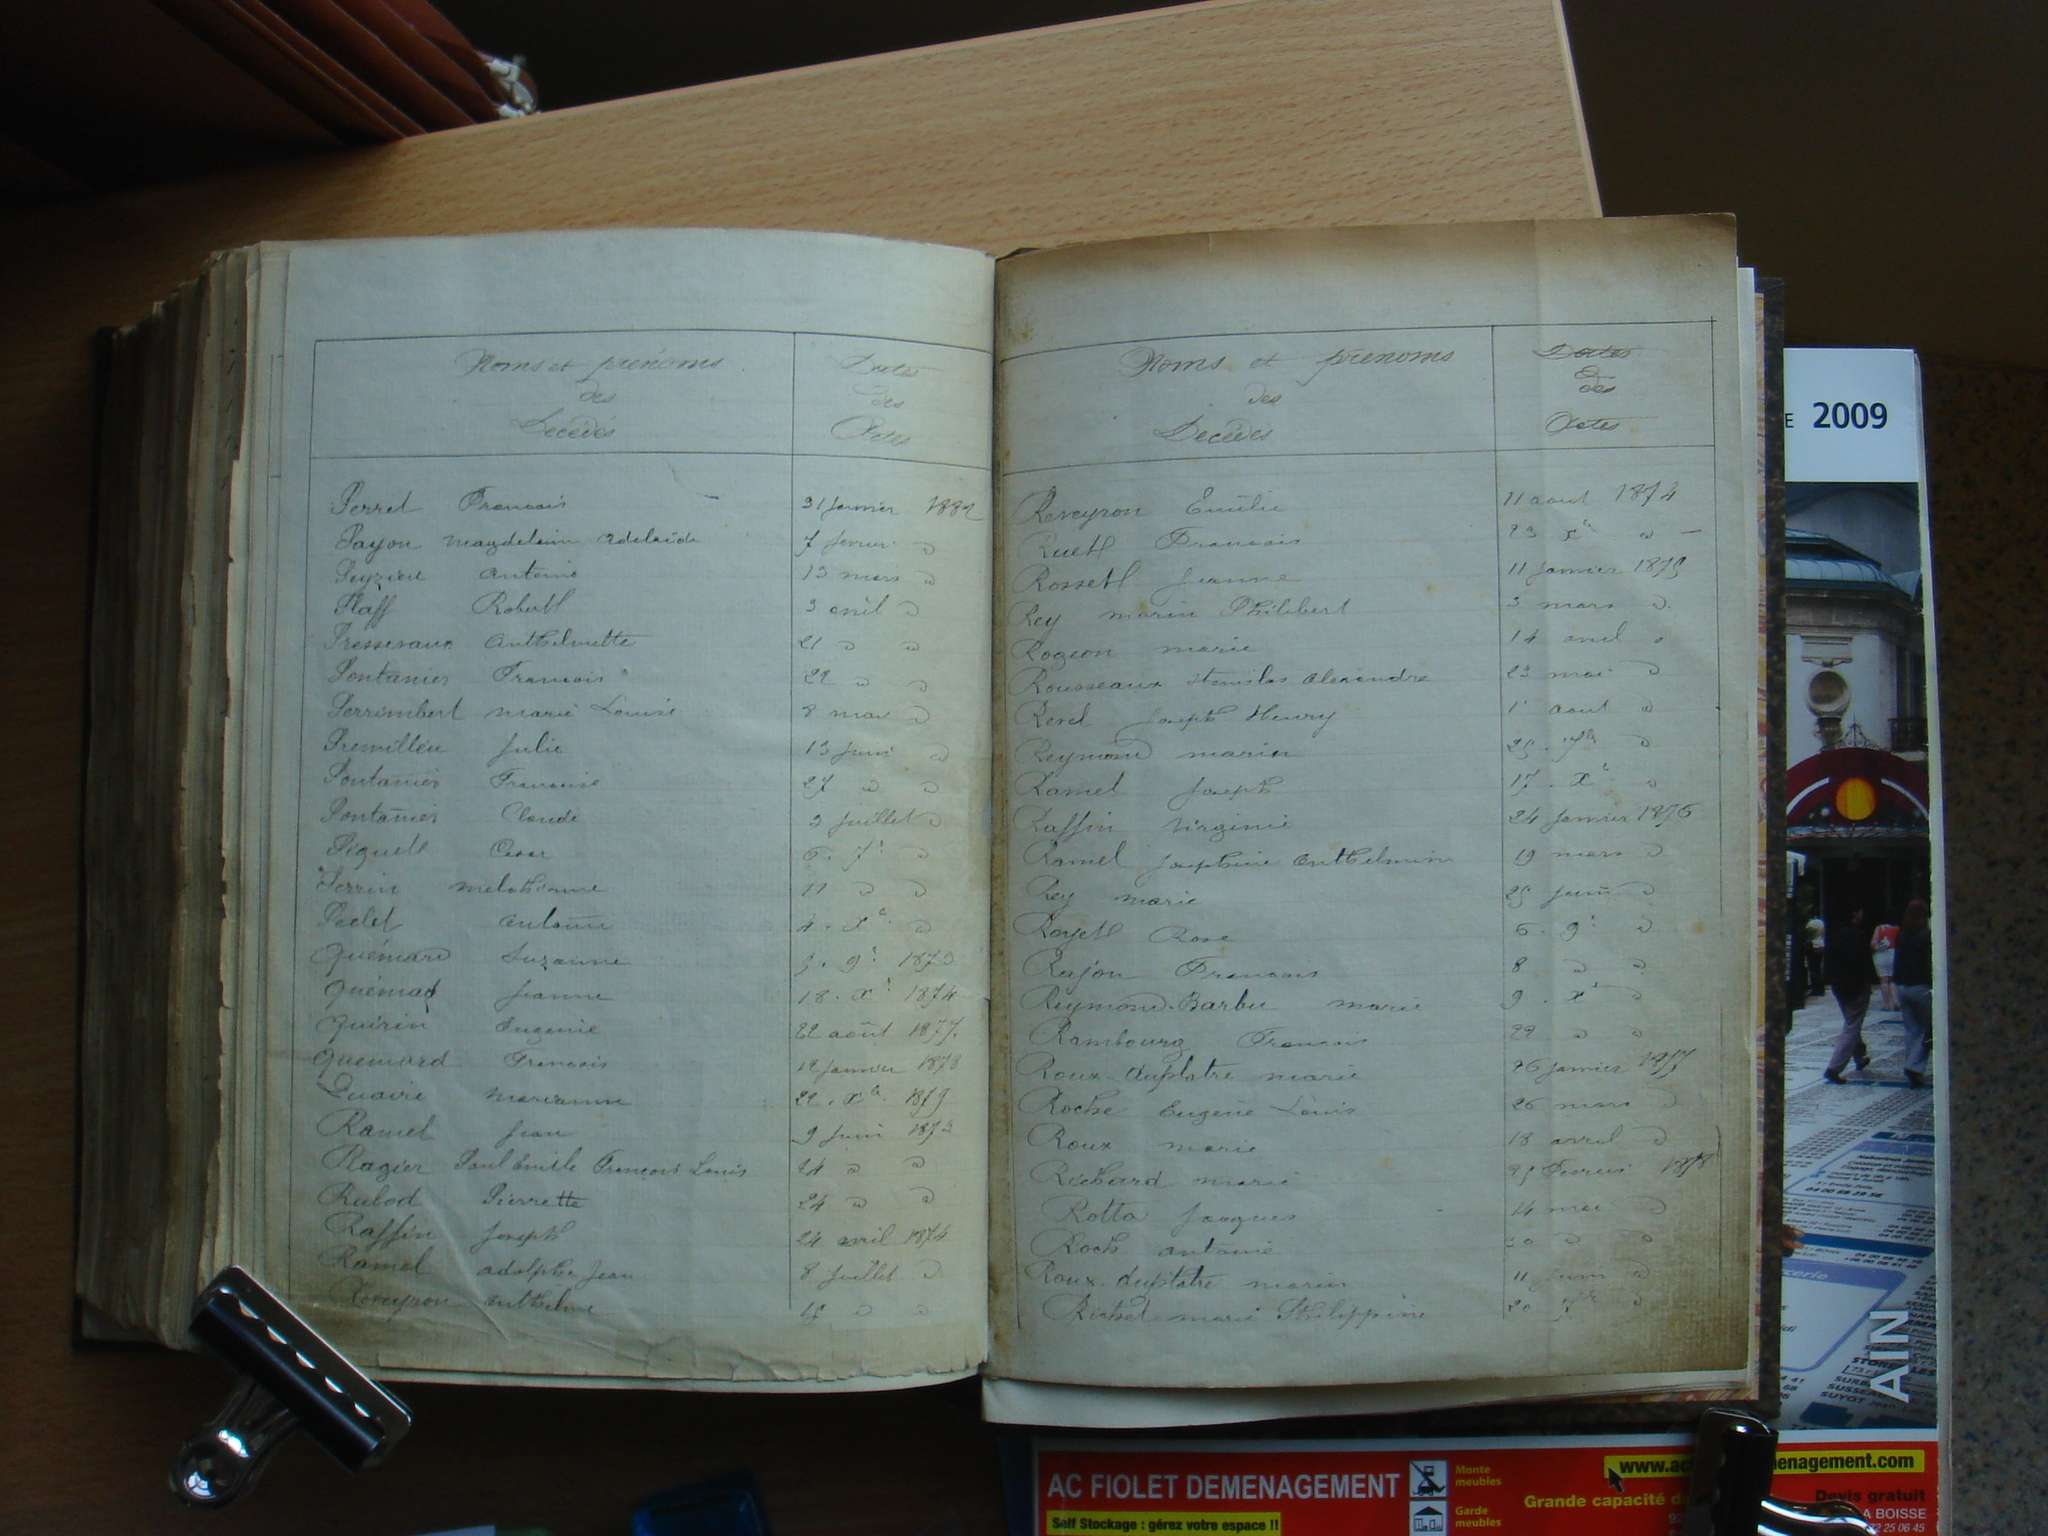 Noms et prénoms
des
Décédés
Dates
des
Actes
Perret Francois 31 Janvier 1882
Payon Magdeleine Adelaïde 7 fevrier
Peyzieu Antoine 13 mars
Pfaff Robert 3 avril
Anthelmette 21
Pontanier Francois 22
Perrimbert Marie Louise 8 mai
Premillieu Julie 13 Juin
Pontanier Francoise 27
Pontanier Claude 2 Juillet
Piquet Cesar 6. 7e
Perrin 11
Peclet Antoine 4. Xe
Quémard Suzanne 9e 1873
Quémad Jeanne 18. Xe 1874
Quirin Eugenie 22 août 1877.
Quemard Francois 12 Janvier 1878
Quaire Marianne 22. Xe 1879
Ramel Jean 9 Juin 1873
Ragier Paul Emile Francois Louis 24
Rubod Pierrette 24
Raffin Joseph 24 avril 1874
Ramel adolphe Jean 8 Juillet
Reveyron Anthelme
Noms et prénoms
des
Décédés
Dates
des
Actes
Reveyron Emilie 11 aout 1874
Ruett Francois 23 Xe
Rossett Jeanne 11 Janvier 1875
Rey marin Philibert 3 mars
Rogeon marie 14 avril
Rousseaux Stanislas Alexandre 23 mai
Revel Joseph Henry 1er aout
Reymond marin 25. 7bre
Ramel Joseph 17. Xe
Raffin Virginie 24 Janvier 1876
Ramel Josephine Anthelmin 19 mars
Rey marie 25 Juin
Royett Rose 6. 9e
Rajon Francois 8
Reymond-Barbu marie 9. Xe
Rambourg Francois 22
Roux-duplatre marie 26 Janvier 1877
Roche Eugene Louis 26 mars
Roux marie 18 avril
Richard marie 25 Fevrier 1878
Rotta Jacques 14 mai
Roch antoine 30
Roux-duplatre marin 11 Juin
Richel marie Philippine 20 7bre
E 2009
AIN
AC FIOLET DEMENAGEMENT
Self Stockage : gérez votre espace !!
Monte
meubles
Garde
meubles
Grande capacité
Devis gratuit
LA BOISSE